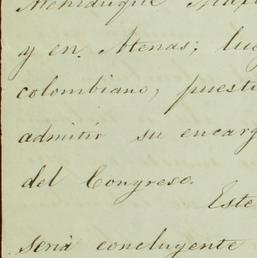 Archiduque
y en Atenas;
colombiano, puesto
admitir su encarg
del Congreso.
Este
seria concluyente